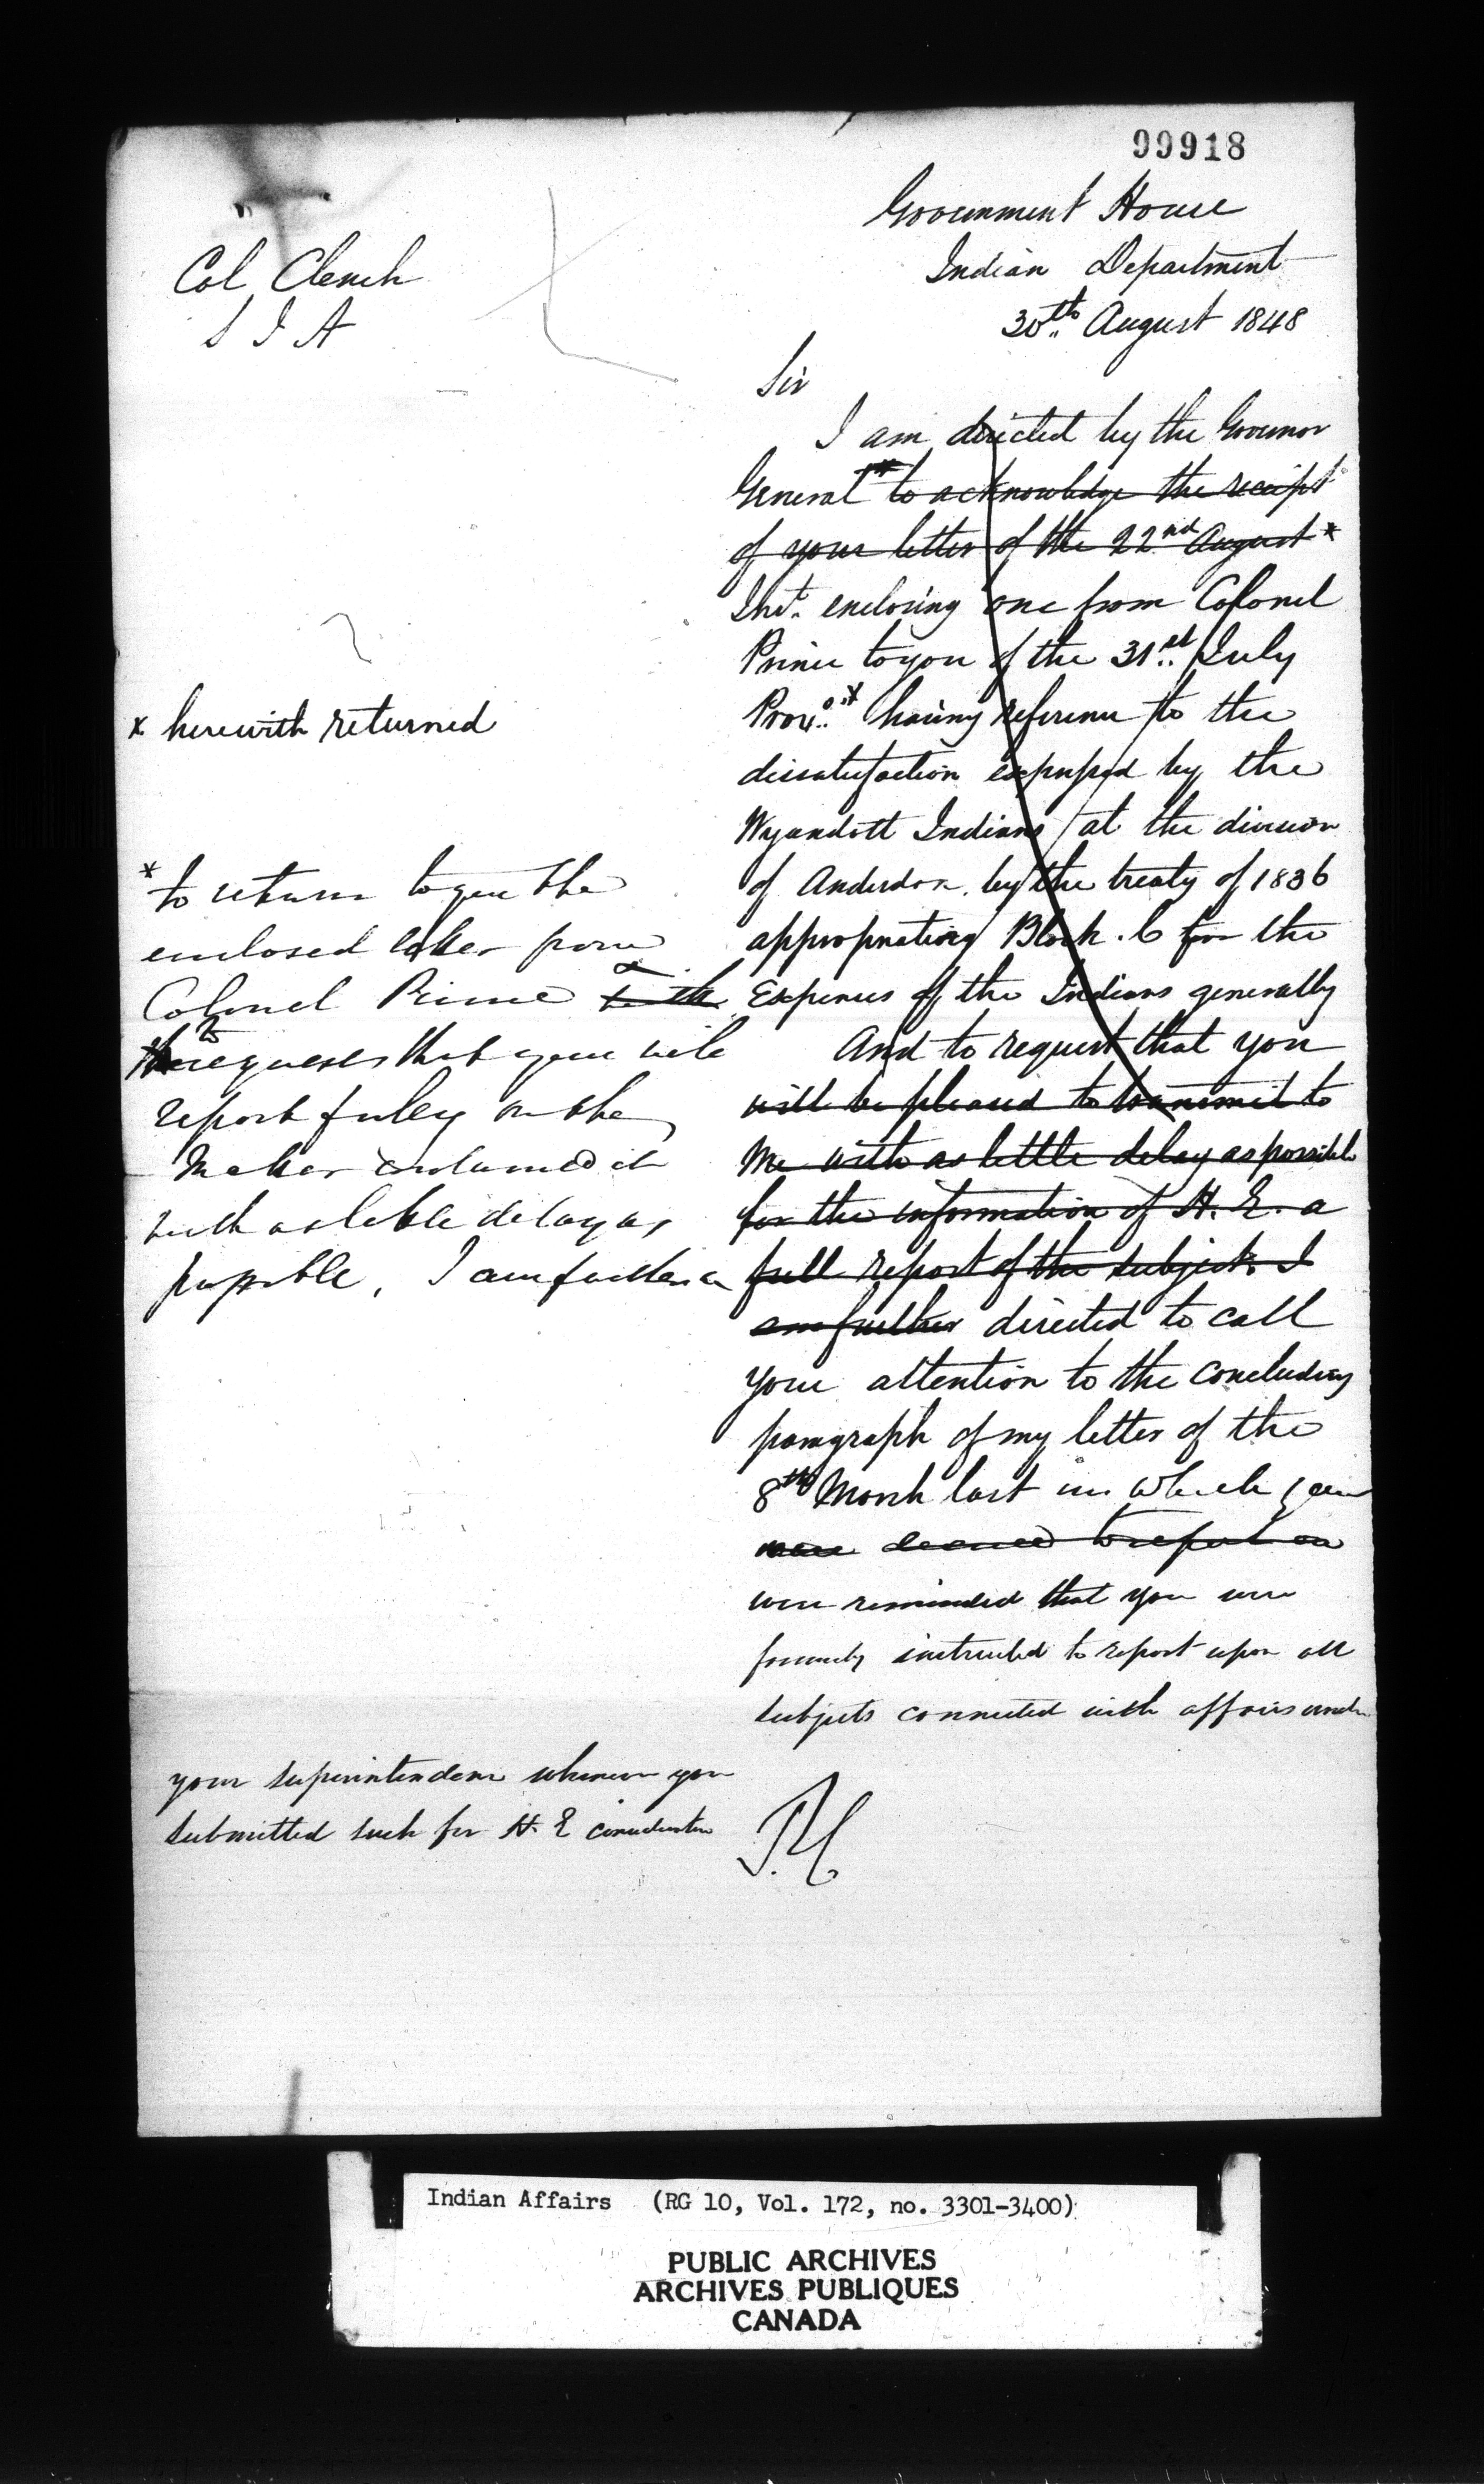 99918
Government House
Indian Department
30th August 1848
Col Clench
S I A
Sir
I am directed by the Governor
General * to acknowledge the receipt
of your letter of the 22nd August *
Inst. enclosing one from Colonel
Prince to you of the 31st July
Provo. x having reference to the
dissatisfaction expressed by the
Wyandott Indians at the division
of Anderdon by the treaty of 1836
appropriating Block . C for the
Expenses of the Indians generally
And to request that you
will be pleased to transmit to
me with as little delay as possible
for the information of H. E. a
full report of the subject. I
am further directed to call
your attention to the concluding
paragraph of my letter of the
8th March last in which you
were desired to report on
were reminded that you were
formerly instructed to report upon all
subjects connected with affairs under
x herewith returned
* to return to you the
enclosed letter from
Colonel Prince &
to request that you will
report fully on the
matter contained in it
with as little delay as
possible, I am further
your superintendence whenever you
submitted such for H. E consideration
Indian Affairs (RG 10, Vol. 172, no. 3301-3400)
PUBLIC ARCHIVES
ARCHIVES PUBLIQUES
CANADA